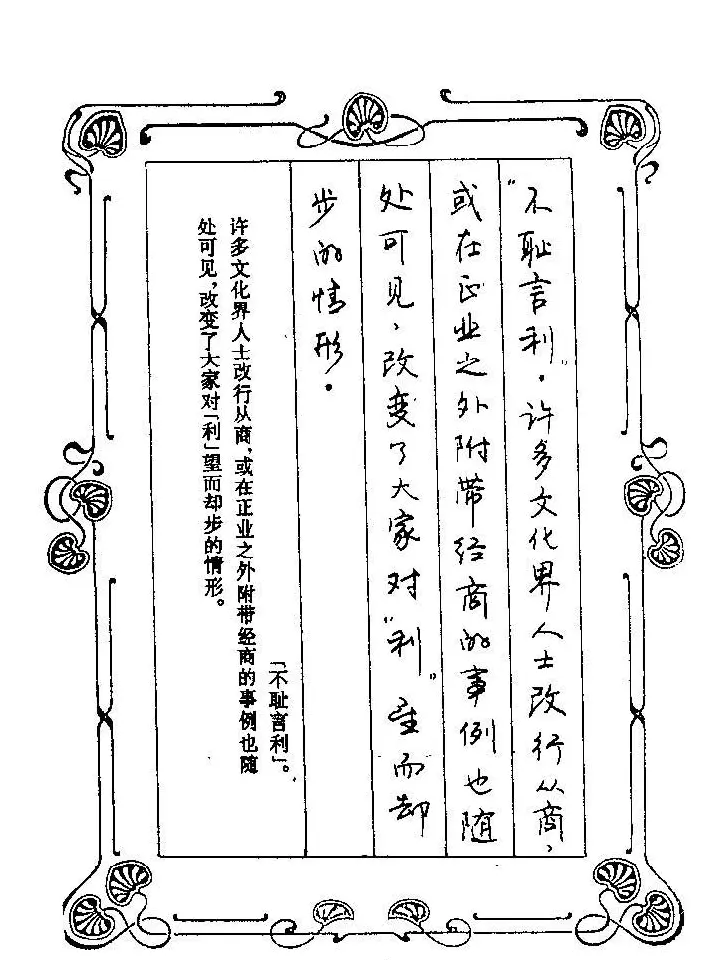 “不耻言利”。许多文化界人士改行从商、
或在正业之外附带经商的事例也随
处可见，改变了大家对“利”望而却
步的情形。
「不耻言利」。
许多文化界人士改行从商，或在正业之外附带经商的事例也随
处可见，改变了大家对「利」望而却步的情形。